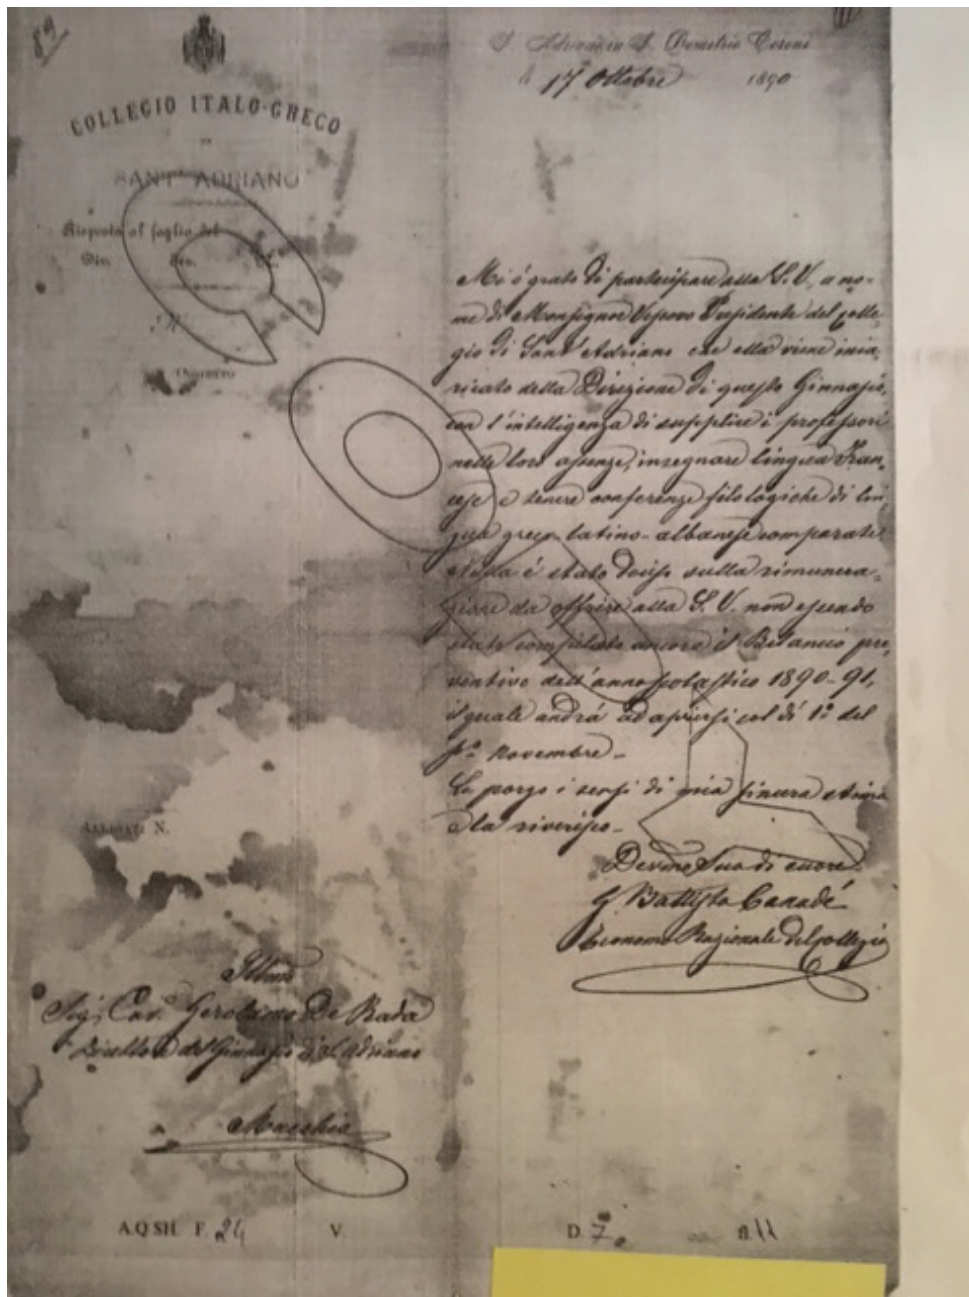 89
S. Adriano in S. Demetrio Corone
li 17 Ottobre 1890
COLLEGIO ITALO-GRECO
DI
SANT' ADRIANO
Risposta al foglio del
Div. Sez. N.
OGGETTO
Mi é grato di partecipare alla S. V., a no-
me di Monsignor Vescovo Presidente del Colle-
gio di Sant' Adriano che ella viene inca-
ricato della Direzione di questo Ginnasio,
con l'intelligenza di supplire i professori
nelle loro assenze, insegnare lingua Fran-
cese e tenere conferenze filologiche di lin-
gua greco-latino-albanese comparate.
Nulla é stato deciso sulla rimunera-
zione da offrire alla S. V. non essendo
stato compilato ancora il Bilancio pre-
ventivo dell'anno scolastico 1890-91,
il quale andrá ad aprirsi col dí 1º del
p.º Novembre-
Le porgo i sensi di mia sincera stima
e la riverisco-
Devmo Suo di cuore
G. Battista Canadé
Economo Razionale del Collegio
ALLEGATI N.
Illmo
Sig. Cav. Gerolamo De Rada
Direttore del Ginnasio di S. Adriano
Macchia
A.Q.SH. F. 24 V. D. 7 fl. 11